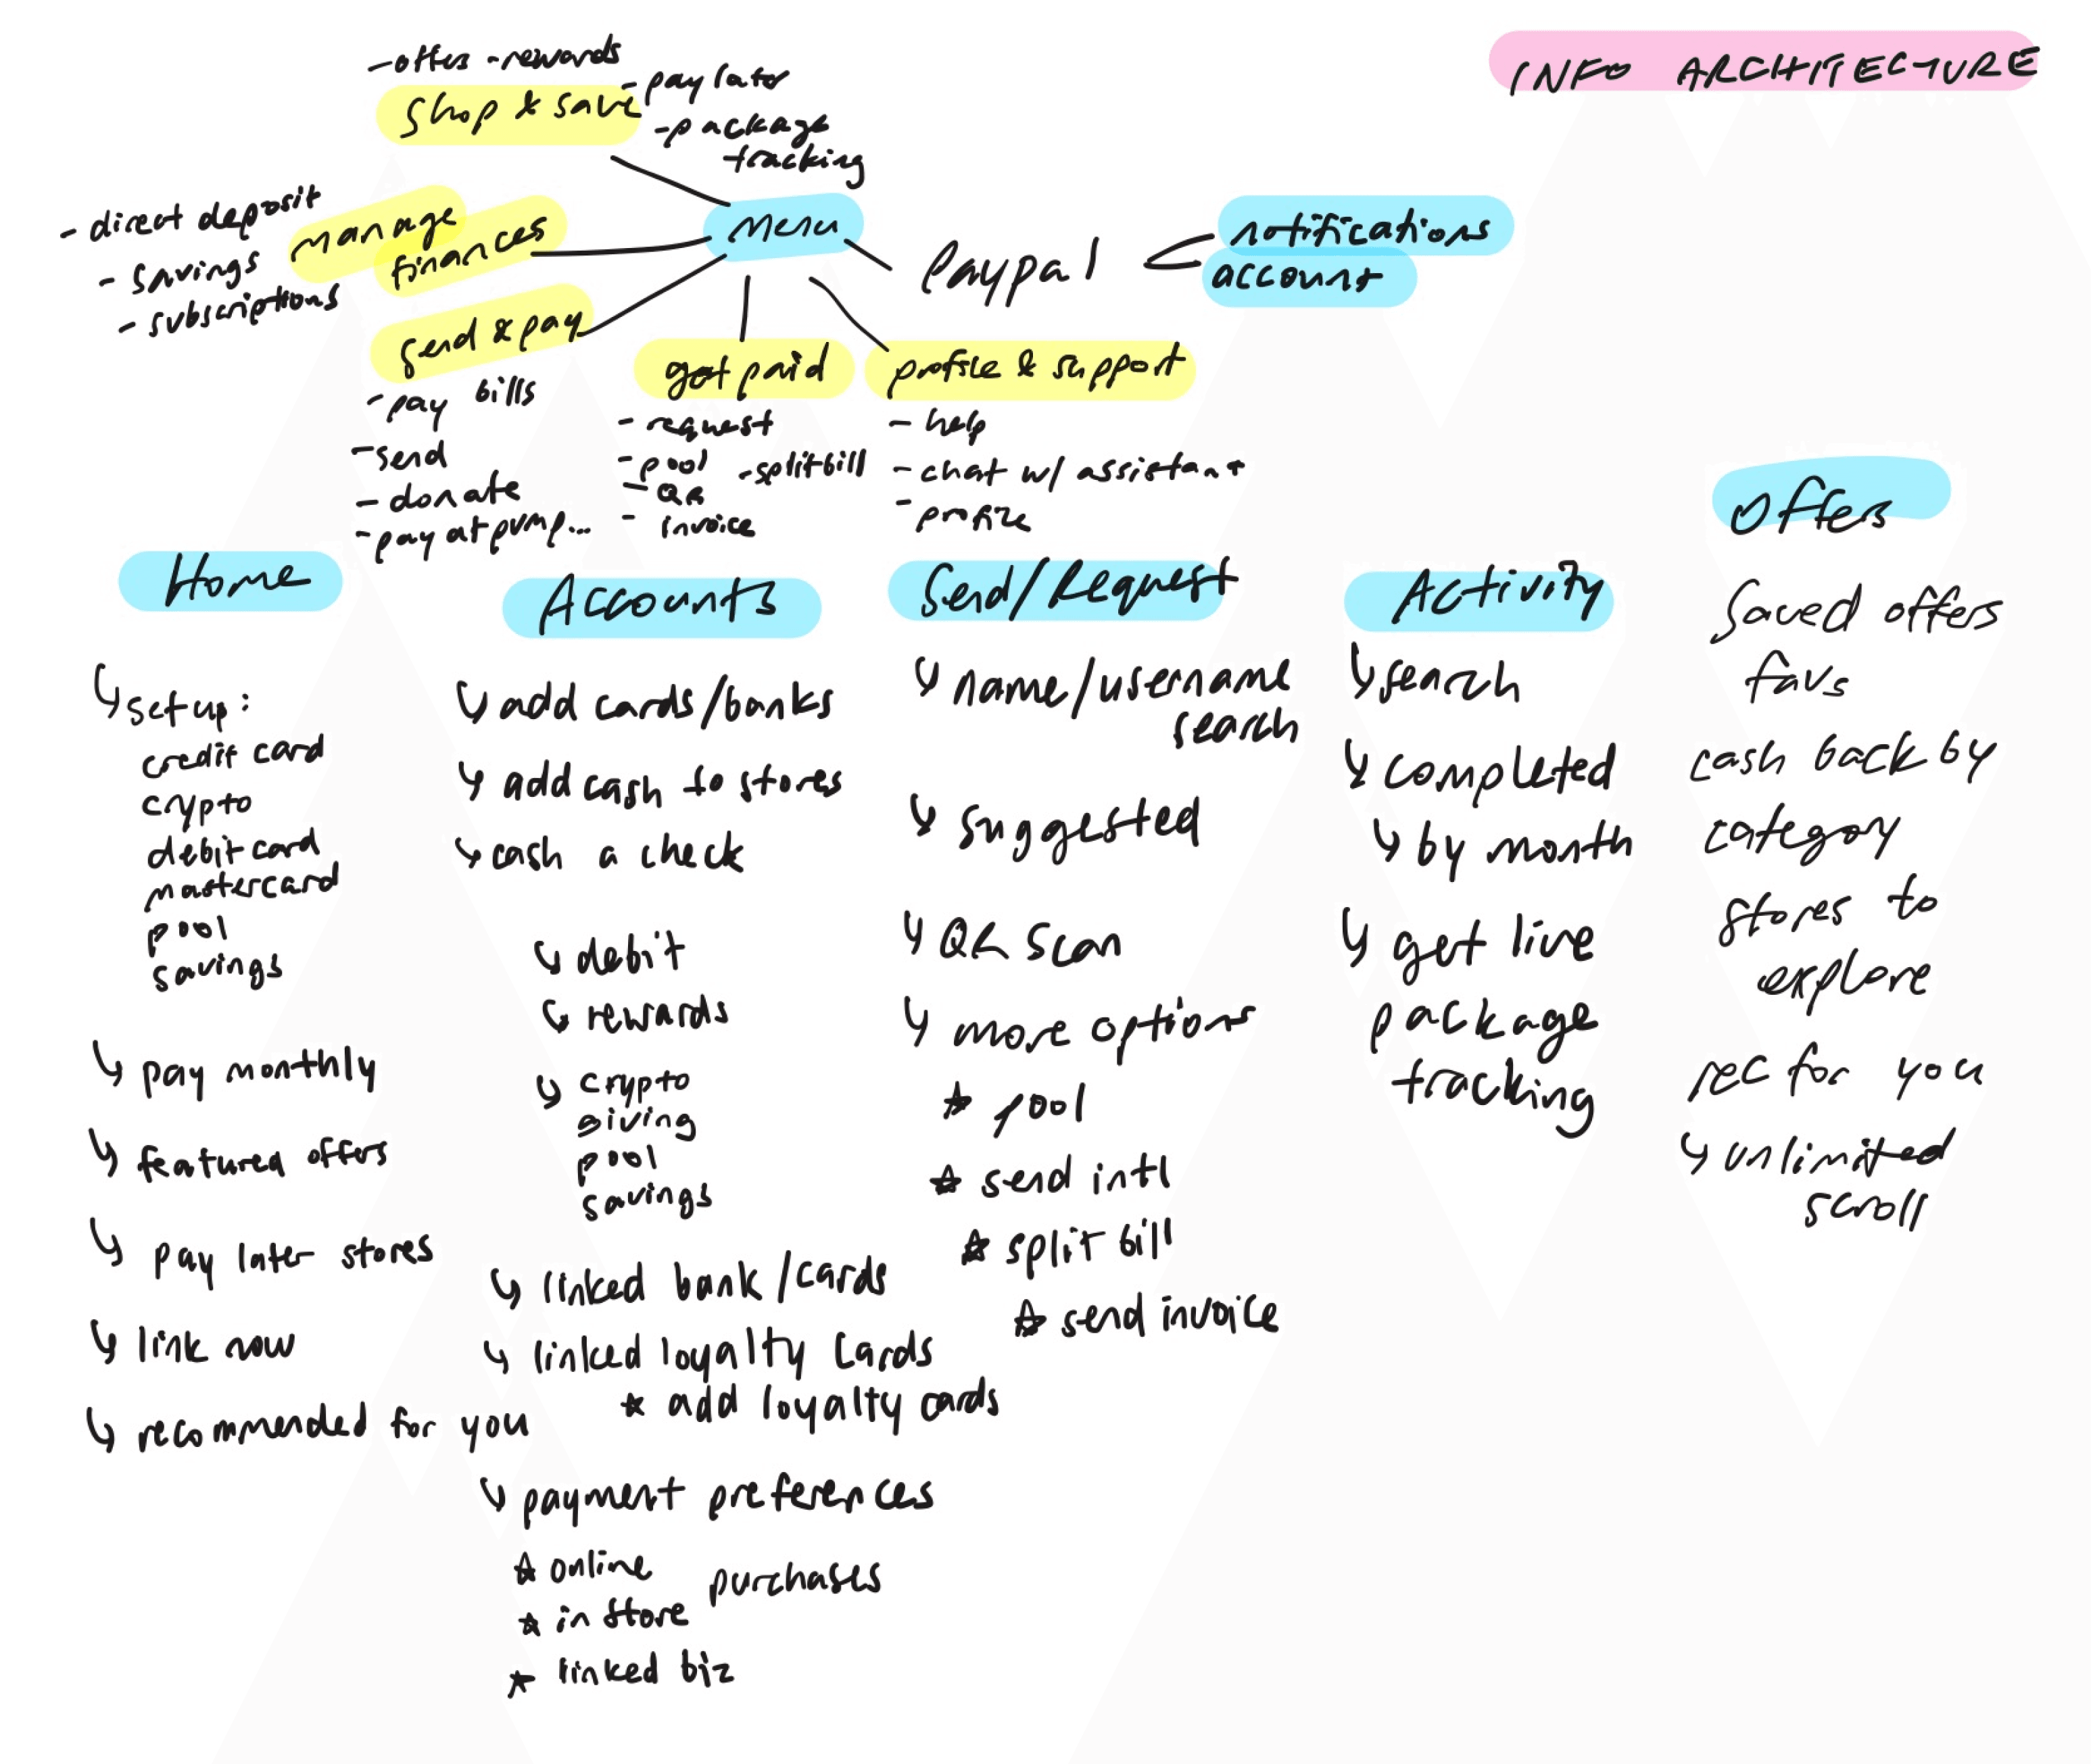 INFO ARCHITECTURE
-offers -rewards
shop & save
-pay later
-package
tracking
-direct deposit
- savings
- subscriptions
manage
finances
Menu
Paypal
notifications
account
send & pay
-pay bills
-send
-donate
-pay at pump...
get paid
-request
-pool -split bill
-QR
- invoice
profile & support
- help
-chat w/ assistant
- profile
Home
↳ setup:
credit card
crypto
debit card
mastercard
pool
savings
↳ pay monthly
↳ featured offers
↳ pay later stores
↳ link now
↳ recommended for you
Accounts
↳ add cards/banks
↳ add cash to stores
↳ cash a check
↳ debit
↳ rewards
↳ crypto
giving
pool
savings
↳ linked bank/cards
↳ linked loyalty cards
☆ add loyalty cards
↳ payment preferences
☆ online
purchases
☆ in store
☆ linked biz
Send/Request
↳ name/username
search
↳ suggested
↳ QR Scan
↳ more options
☆ pool
☆ send intl
☆ split bill
☆ send invoice
Activity
↳ search
↳ completed
↳ by month
↳ get live
package
tracking
Offers
Saved offers
favs
cash back by
category
stores to
explore
rec for you
↳ unlimited
scroll